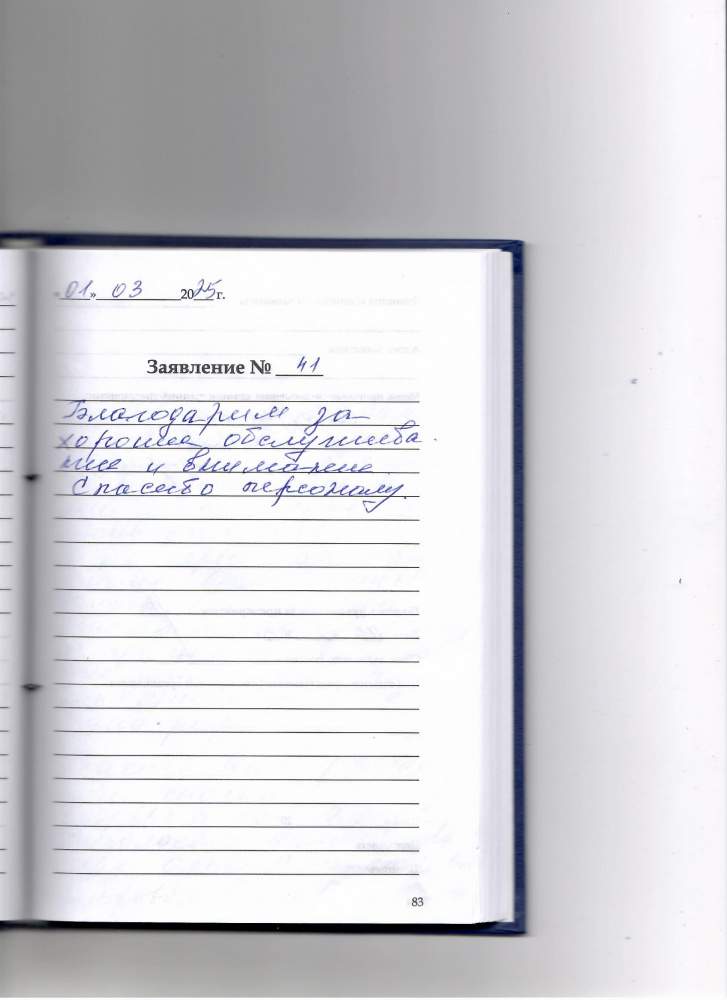 «01» 03 2025 г.
Заявление № 41
Благодарим за
хорошее обслужива
ние и внимание.
Спасибо персоналу.
83